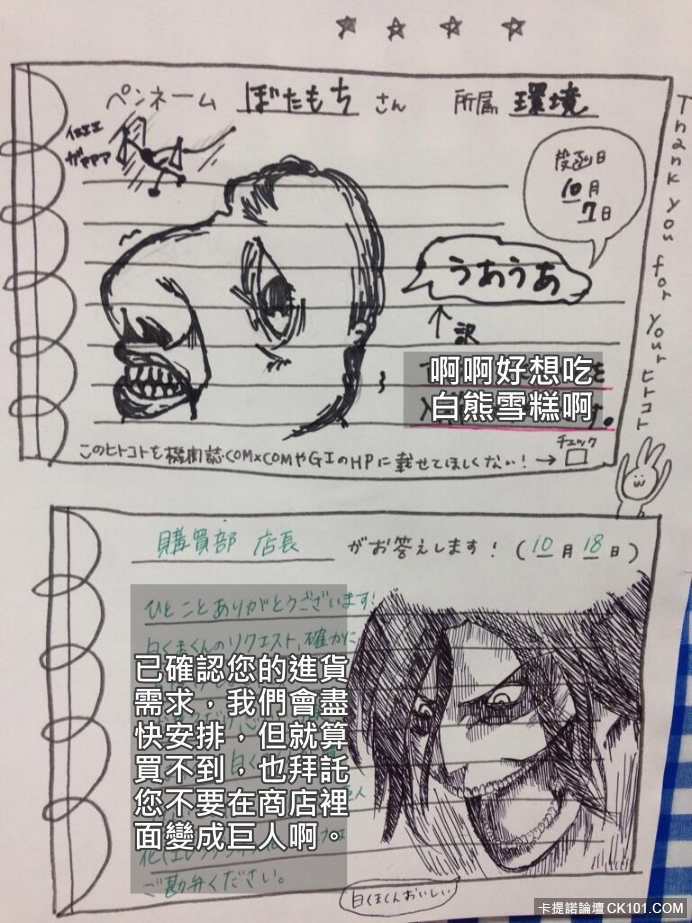 ペンネーム ぼたもち さん 所属 環境
イエエエ
ガァァァ
投函日
10月
7日
うあうあ
↑訳
啊啊好想吃
白熊雪糕啊
チェック
このヒトコトを機関誌COM×COMやGIのHPに載せてほしくない！→□
Thank you for your ヒトコト
購買部 店長 がお答えします！(10月18日)
ひとことありがとうございます！
白くまくんのリクエスト、確かに
已確認您的進貨
需求，我們會盡
快安排，但就算
買不到，也拜託
您不要在商店裡
面變成巨人啊。
ご勘弁ください。
白くまくんおいしい
卡提諾論壇 CK101.COM